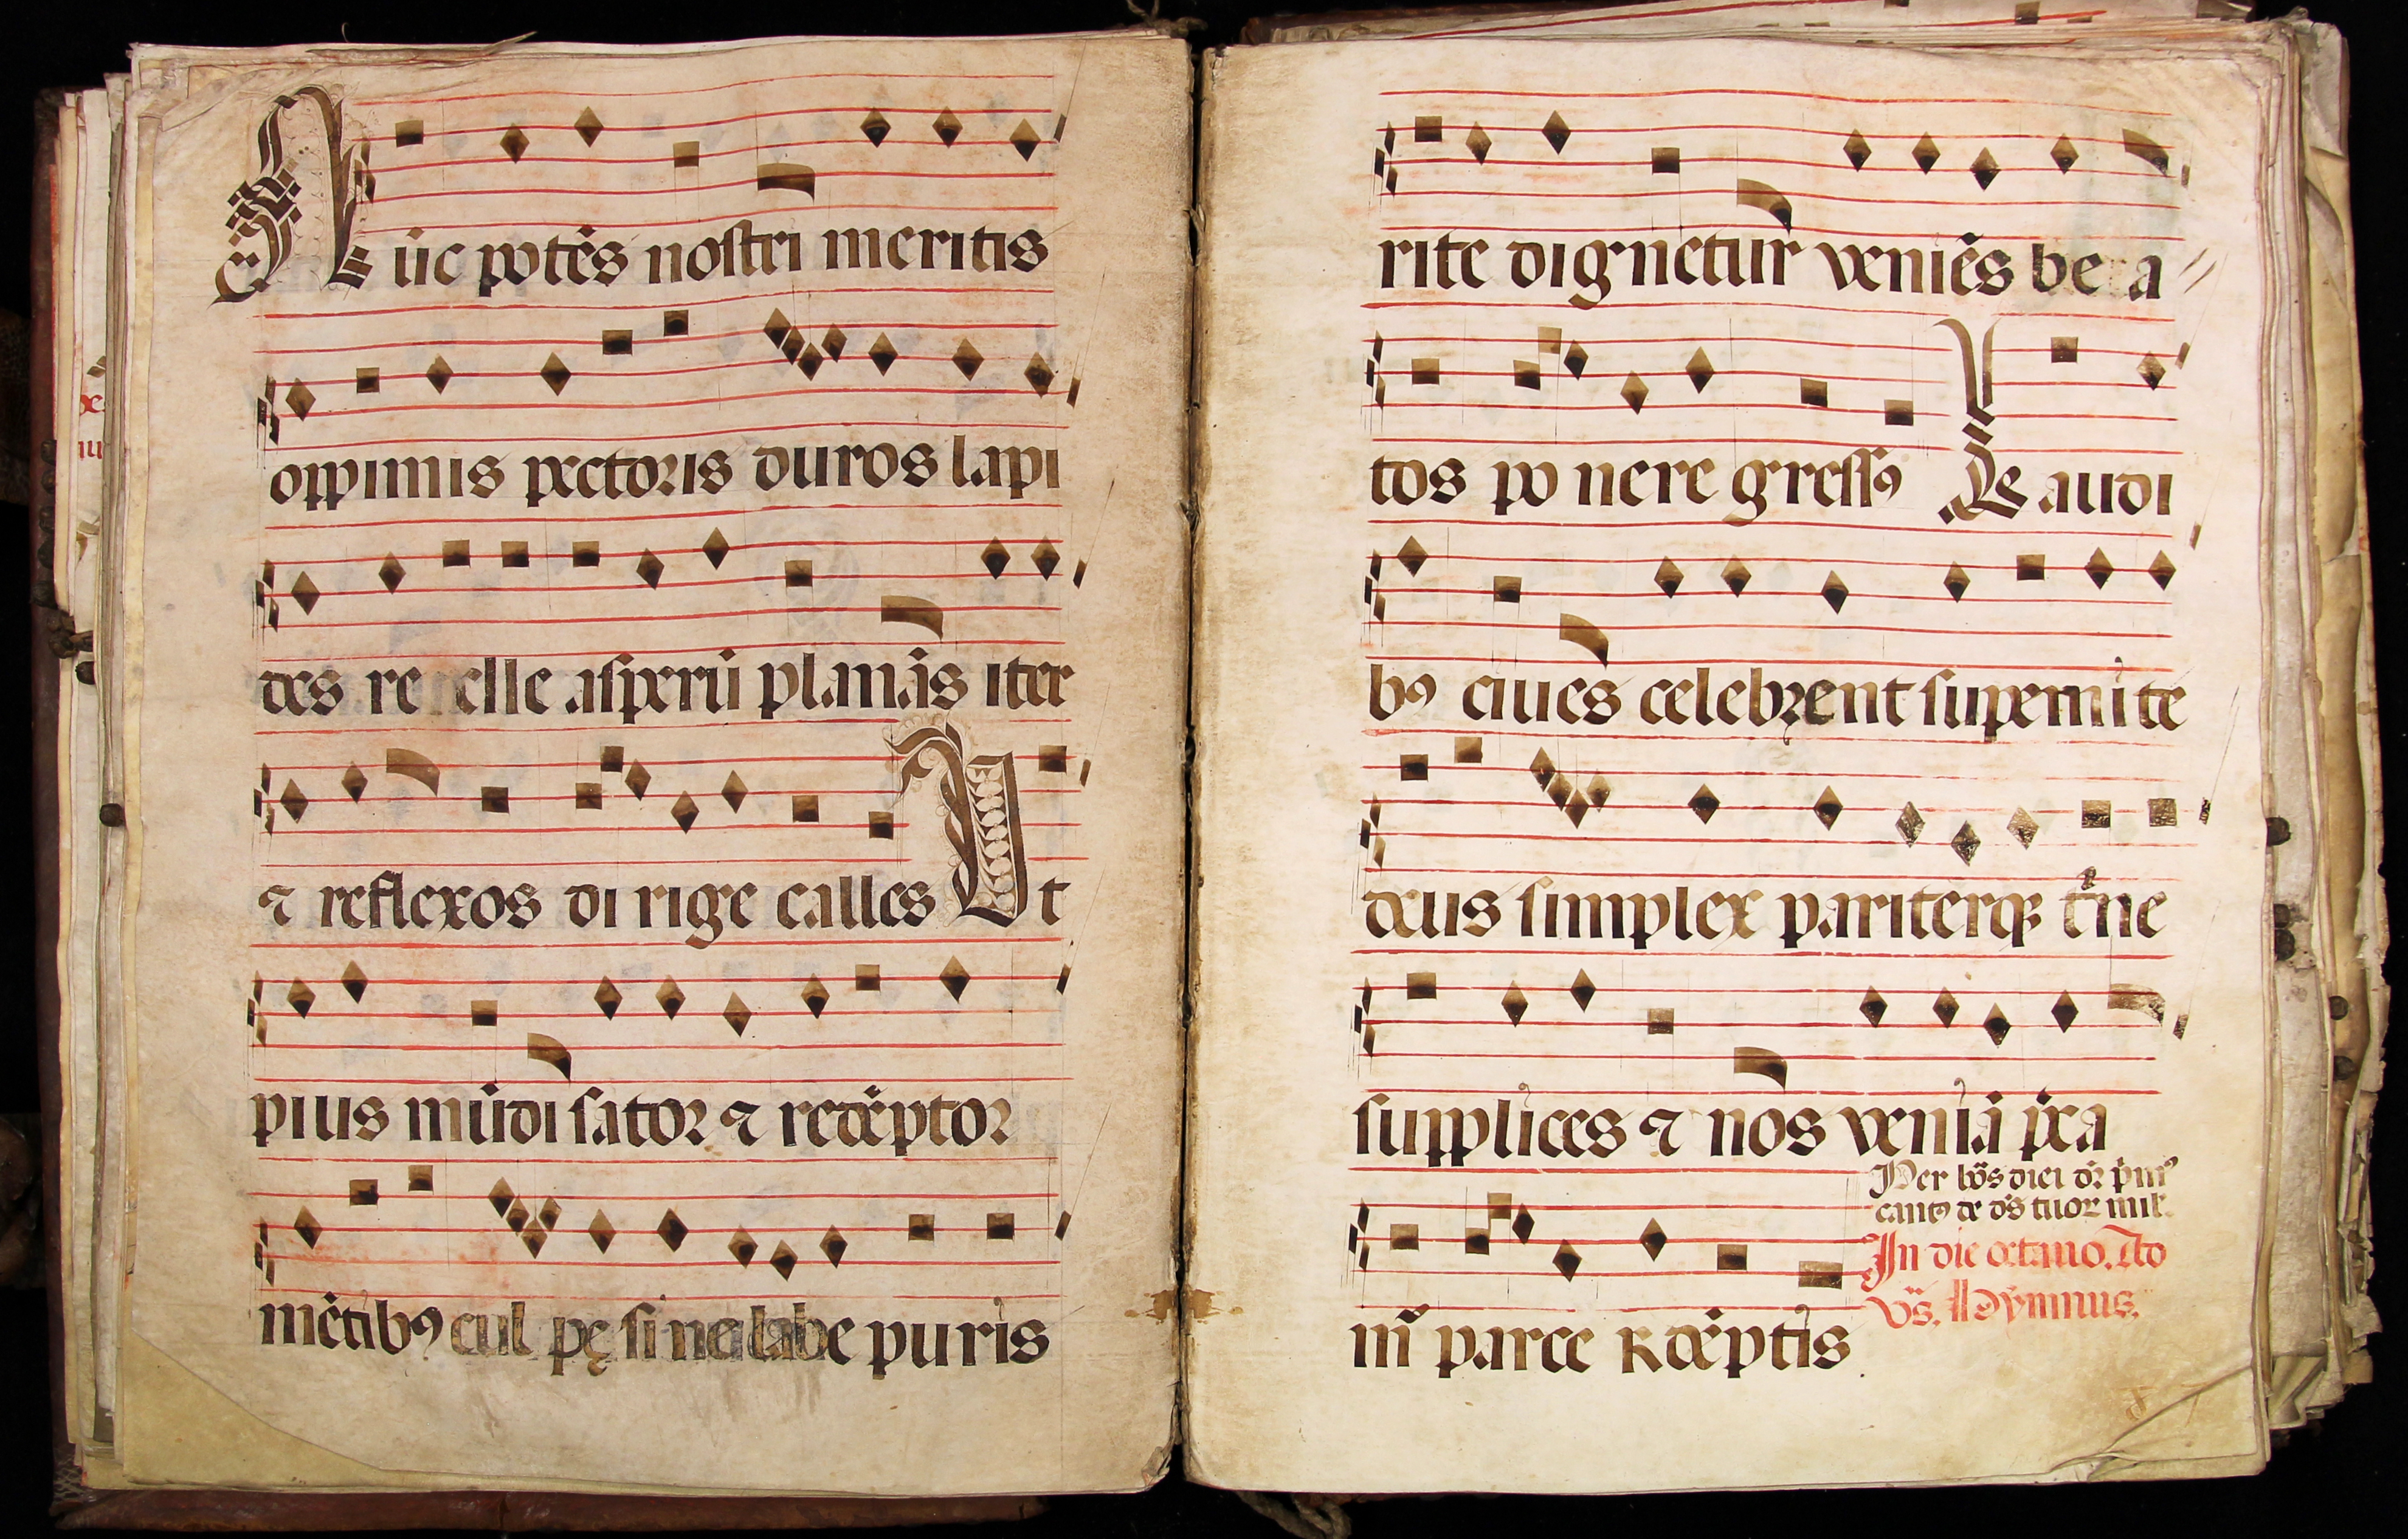 Nūc potēs nostri meritis
oppimis pectoris duros lapi
des re pelle asperū planās iter
⁊ reflexos di rige calles Ut
pius mūdi sator ⁊ redēptor
mētibꝰ cul pę sine labe puris
rite dignetur veniēs bea
tos po nere gressꝰ Laudi
bꝰ ciues celebrent superni te
deus simplex pariterqꝫ trine
supplices ⁊ nos veniā preca
mur parce redēptis
In die octauo. Ad
vs̄. Hymnus.